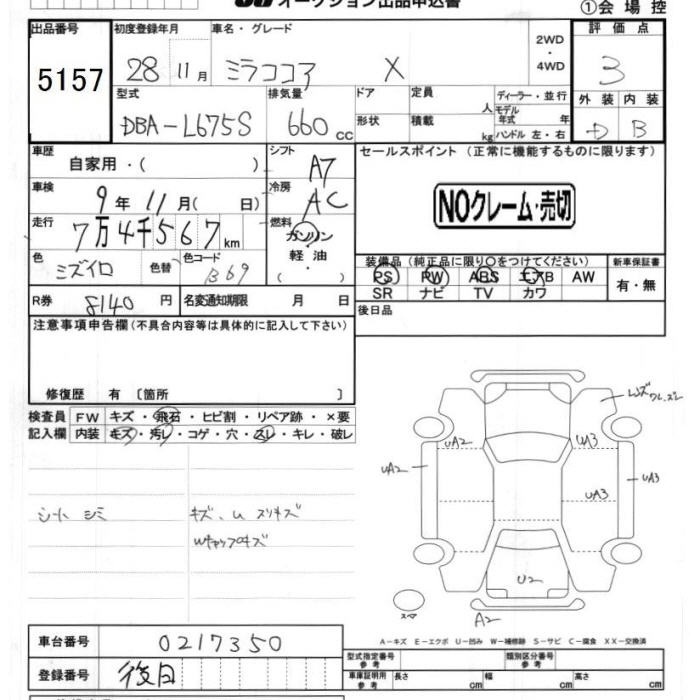 オークション出品申込書
①会場控
出品番号 初度登録年月 車名・グレード 2WD・4WD 評価点
5157 28 11月 ミラココア X 3
型式 排気量 ドア 定員 人 ディーラー・並行 外装 内装
モデル年式 年
DBA-L675S 660cc 形状 積載 kg ハンドル 左・右 D B
車歴 自家用・( ) シフト A7 セールスポイント (正常に機能するものに限ります)
車検 9年11月( 日) 冷房 AC NOクレーム・売切
走行 7万4千567km 燃料 ガソリン
軽油
( )
色 ミズイロ 色替 色コード B69
装備品(純正品に限り〇をつけてください) 新車保証書
PS PW ABS エアB AW 有・無
SR ナビ TV カワ
R券 8140円 名変通知期限 月 日 後日品
注意事項申告欄(不具合内容等は具体的に記入して下さい)
修復歴 有 〔箇所 〕
検査員 FW キズ・飛石・ヒビ割・リペア跡・×要
記入欄 内装 キズ・汚レ・コゲ・穴・スレ・キレ・破レ
レンズ
UA2 UA3
UA2 UA3
UA3
シート シミ キズ、U スリキズ
Wキャップキズ
U2
スマ
A2
A-キズ E-エクボ U-凹み W-補修跡 S-サビ C-腐食 XX-交換済
車台番号 0217350
型式指定番号 参考 類別区分番号 参考
登録番号 後日 車庫証明用 参考 長さ cm 幅 cm 高さ cm